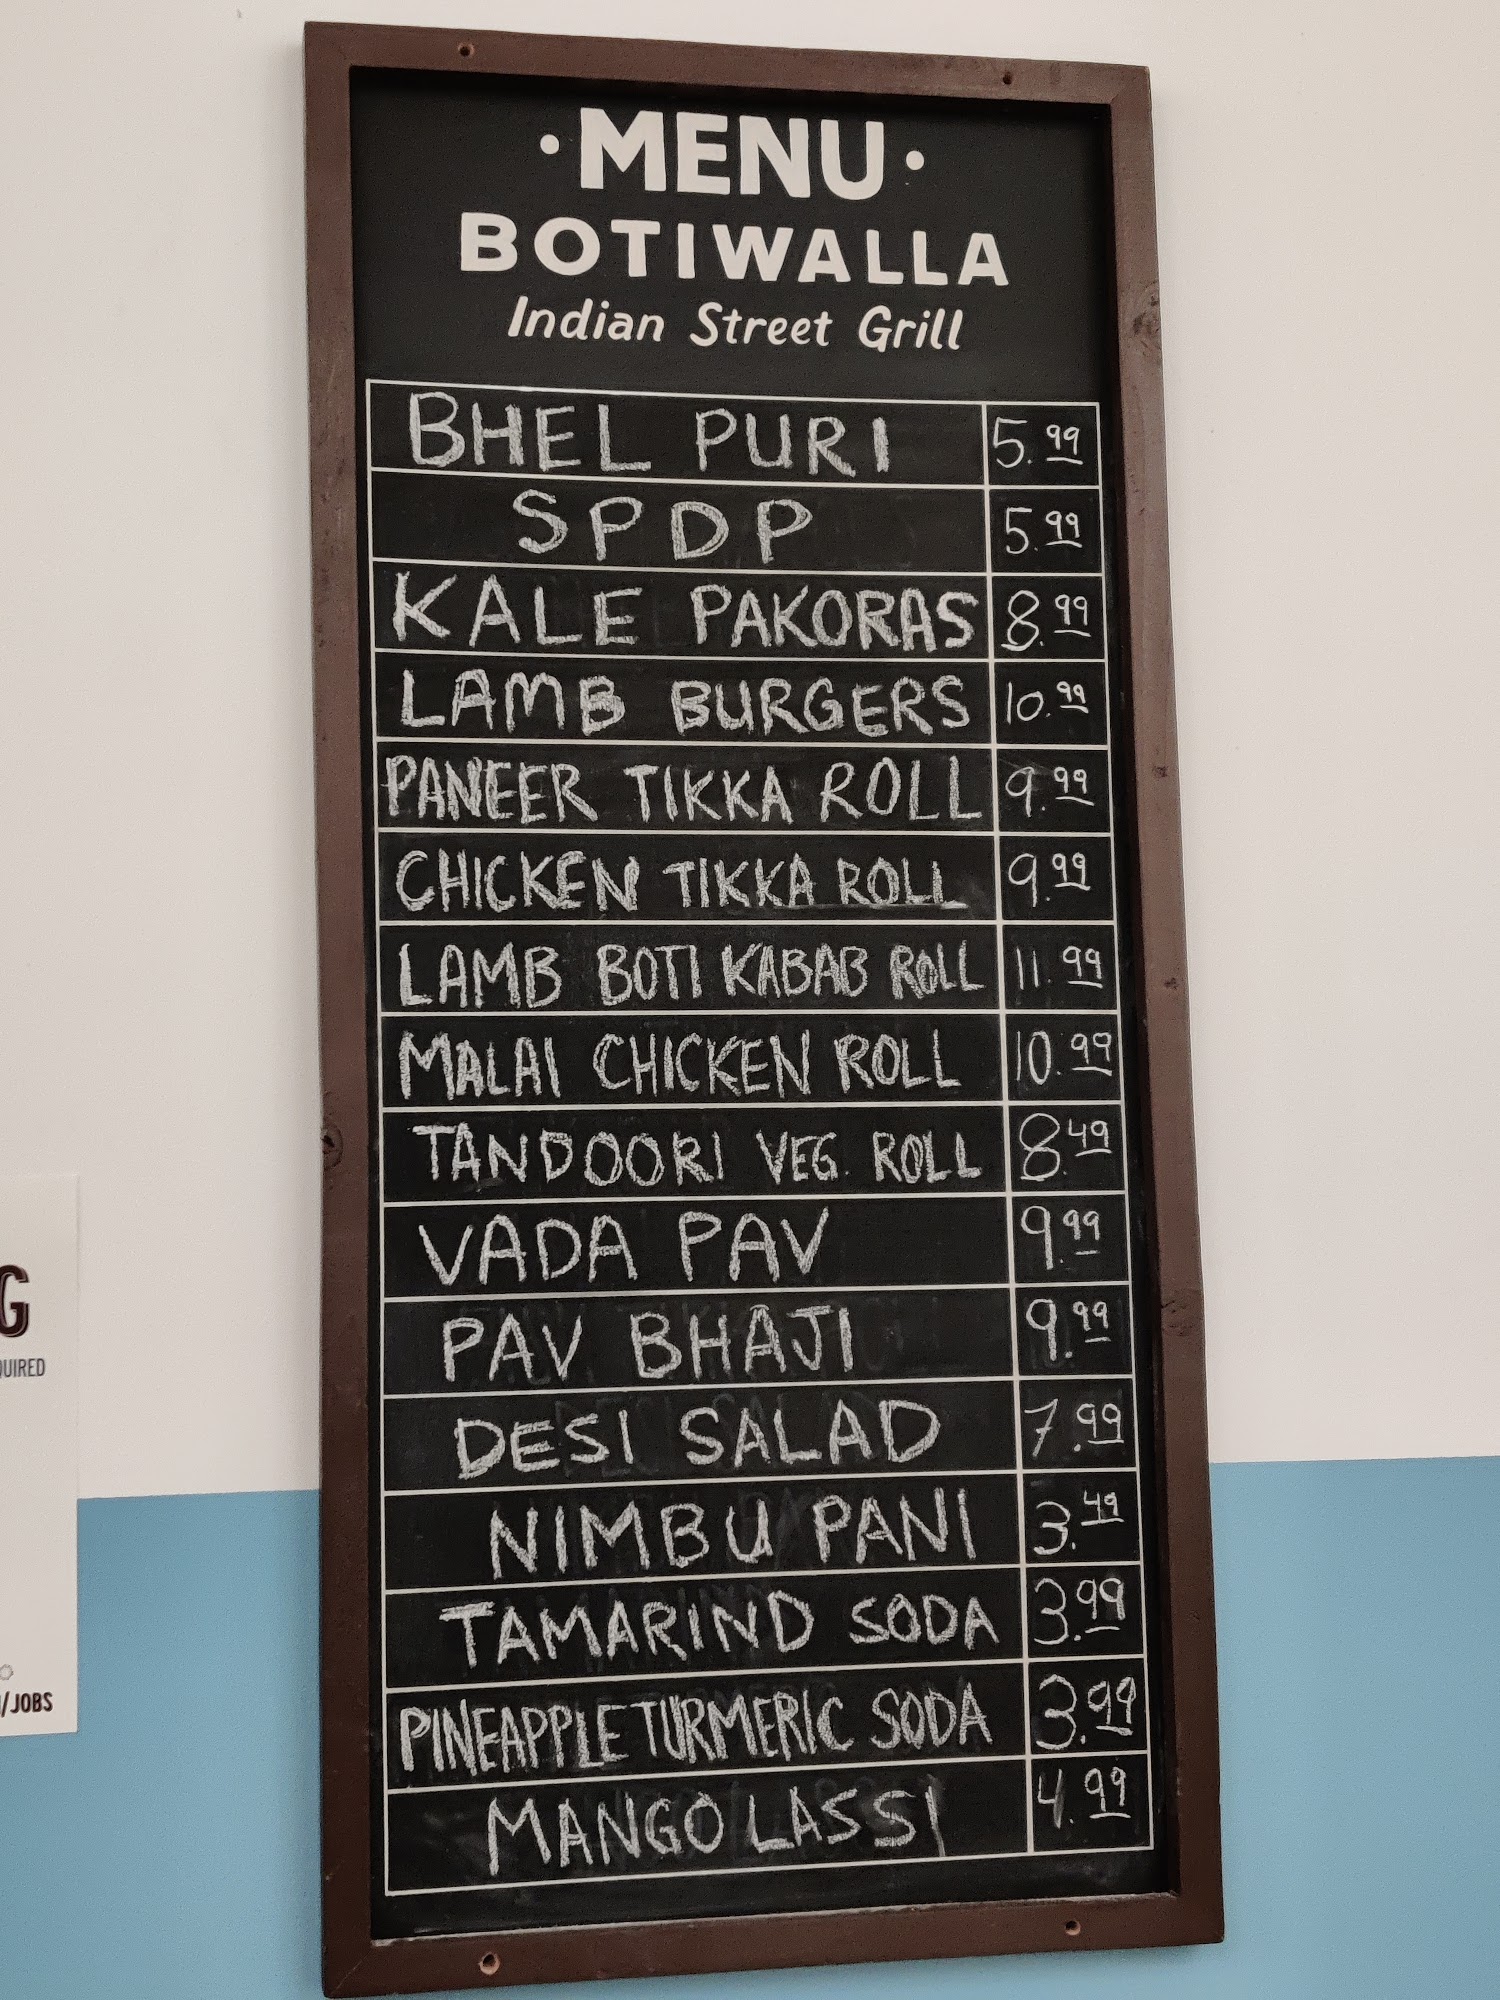 • MENU •
BOTIWALLA
Indian Street Grill
BHEL PURI 5.99
SPDP 5.99
KALE PAKORAS 8.99
LAMB BURGERS 10.99
PANEER TIKKA ROLL 9.99
CHICKEN TIKKA ROLL 9.99
LAMB BOTI KABAB ROLL 11.99
MALAI CHICKEN ROLL 10.99
TANDOORI VEG. ROLL 8.49
VADA PAV 9.99
PAV BHAJI 9.99
DESI SALAD 7.99
NIMBU PANI 3.49
TAMARIND SODA 3.99
PINEAPPLE TURMERIC SODA 3.99
MANGO LASSI 4.99
G
QUIRED
/JOBS